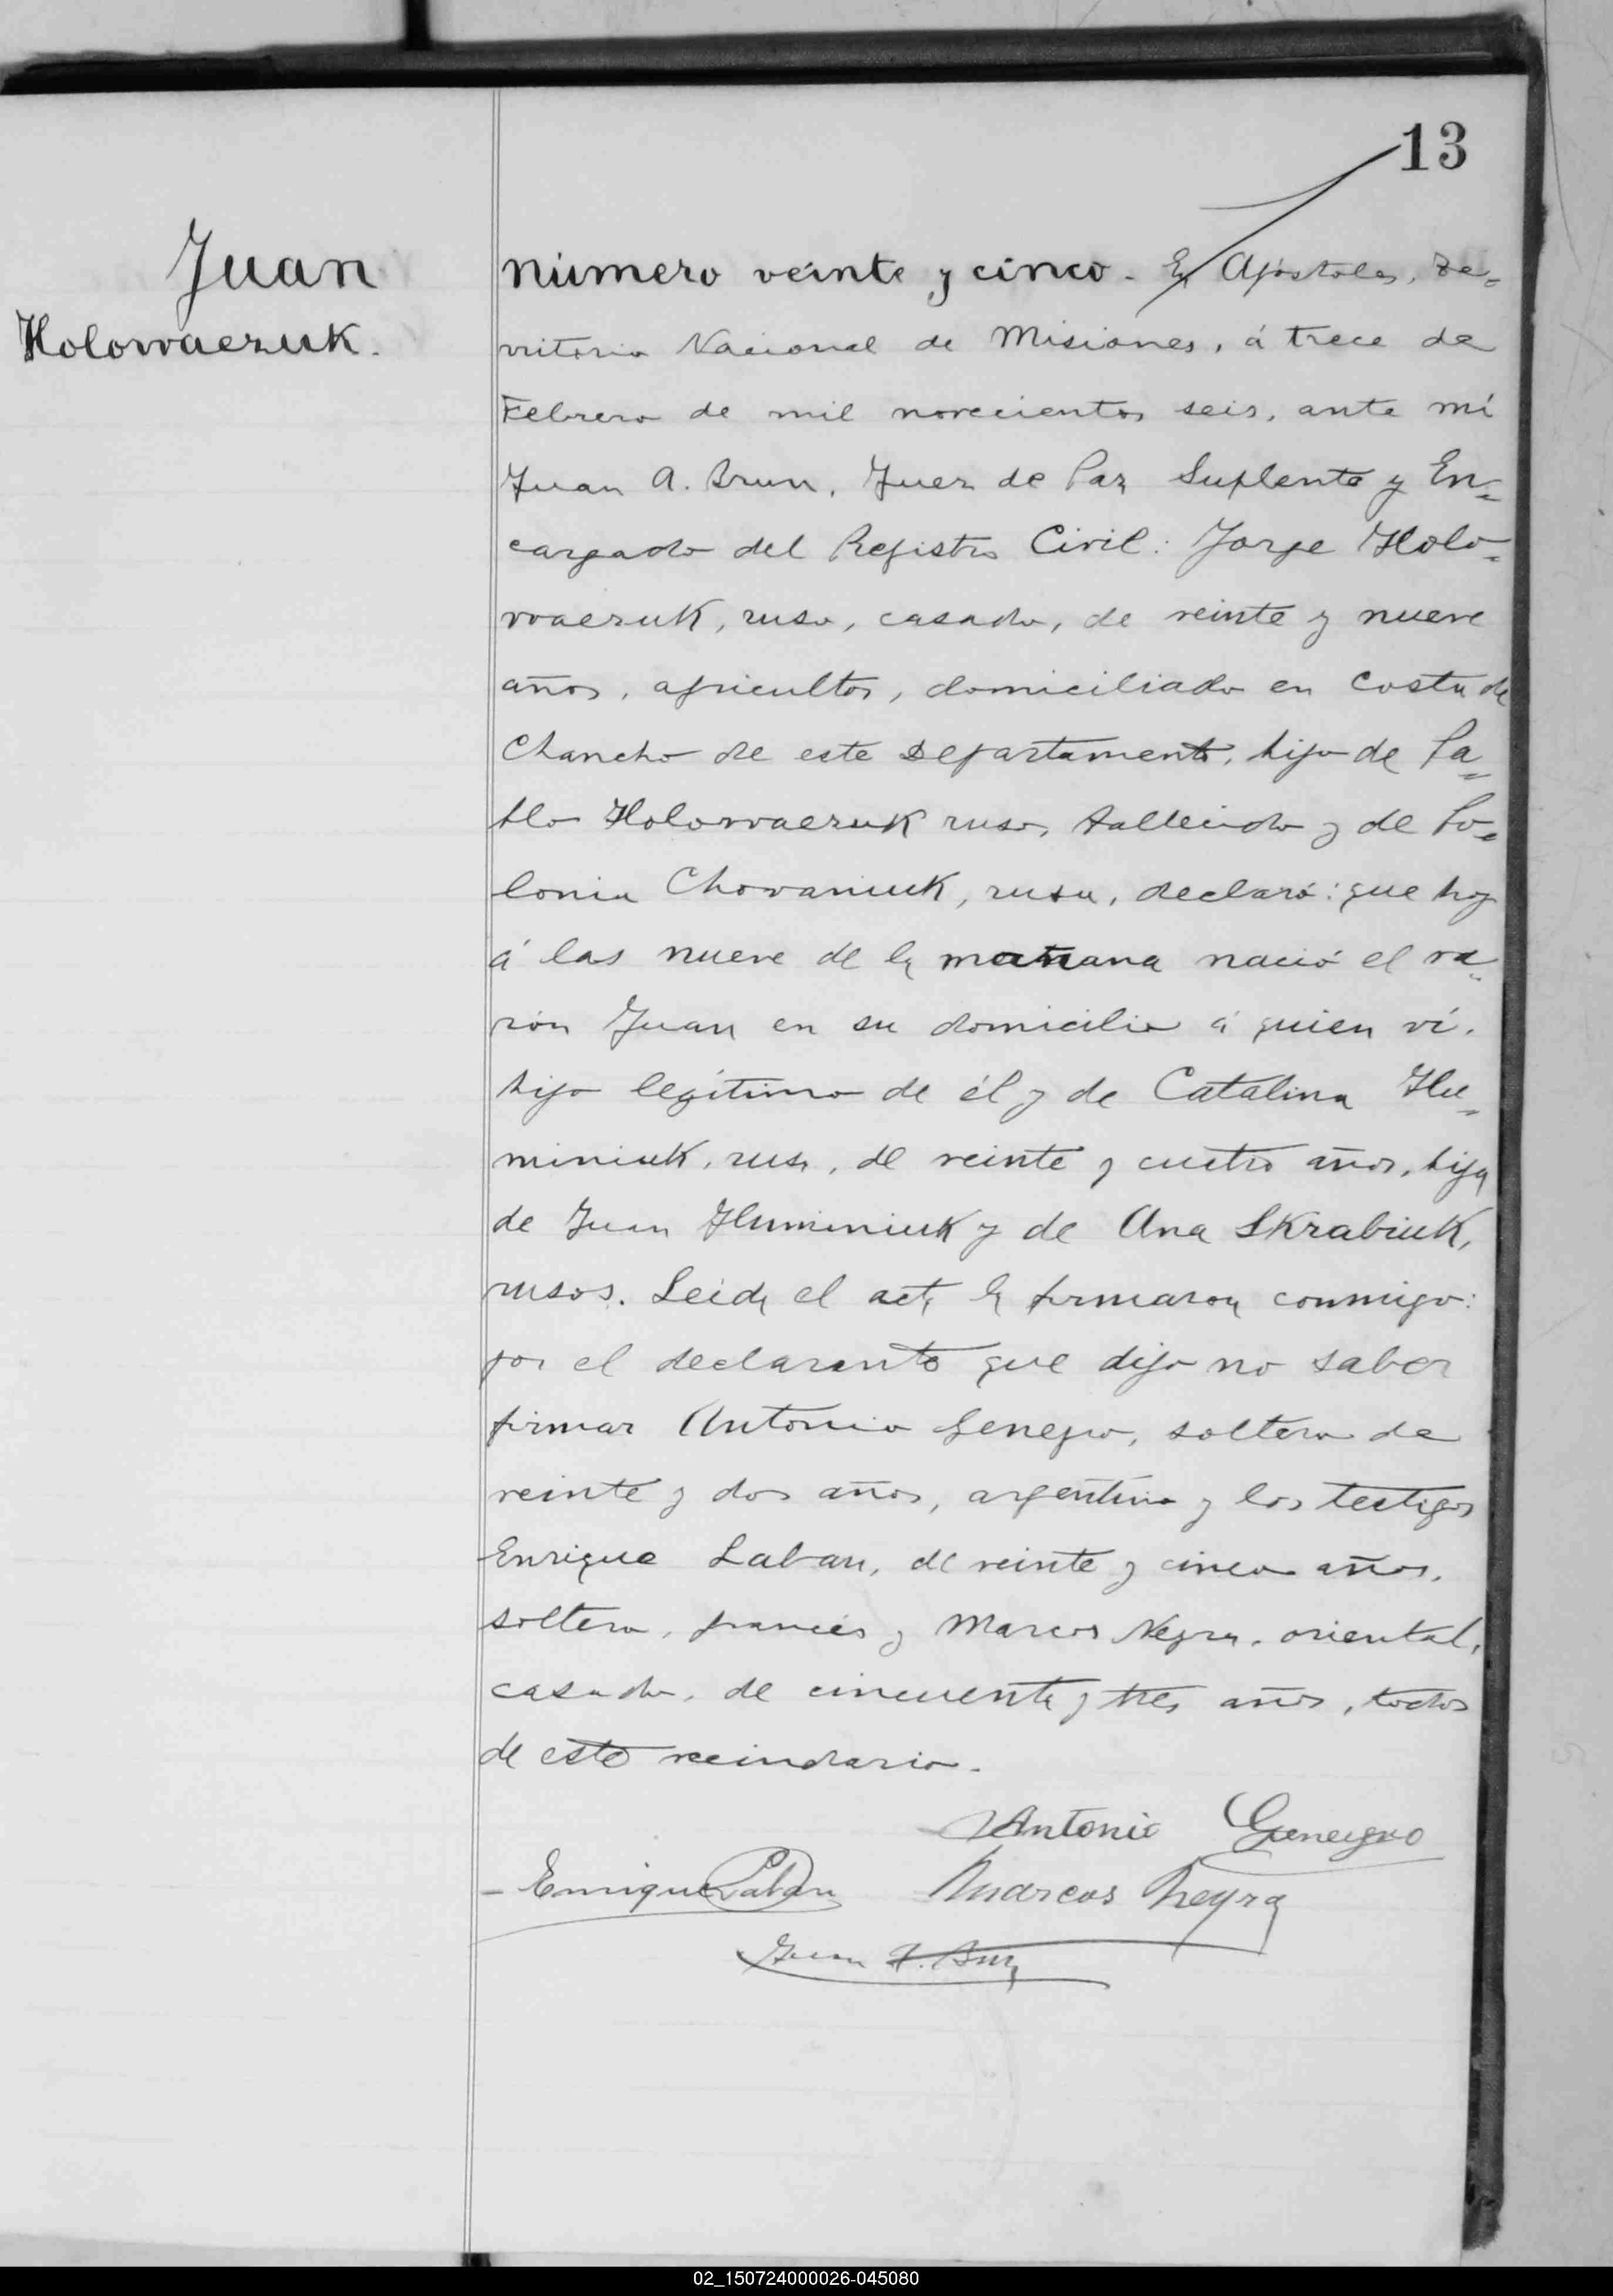 13
Juan
Holowaczuk.
Número veinte y cinco. En Apóstoles, Te=
rritorio Nacional de Misiones, á trece de
Febrero de mil novecientos seis, ante mí
Juan A. Brun, Juez de Paz Suplente y En=
cargado del Registro Civil: Jorge Holo=
waczuk, ruso, casado, de veinte y nueve
años, agricultor, domiciliado en Costa de
Chancho de este Departamento, hijo de Pa=
blo Holowaczuk ruso, fallecido y de Po=
lonia Chowaniuk, rusa, declaró: que hoy
á las nueve de la mañana nació el va=
rón Juan en su domicilio á quien ví.
hijo legítimo de él y de Catalina Hu=
miniuk, rusa, de veinte y cuatro años, hija
de Juan Huminiuk y de Ana Skrabiuk,
rusos. Leida el acta la firmaron conmigo:
por el declarante que dijo no saber
firmar Antonio Genegro, soltero de
veinte y dos años, argentino y los testigos
Enrique Laban, de veinte y cinco años,
soltero, francés y Marcos Neyra, oriental,
casado, de cincuenta y tres años, todos
de este vecindario.
Antonio Genegro
Enrique Laban Marcos Neyra
Juan A. Brun
02_150724000026-045080